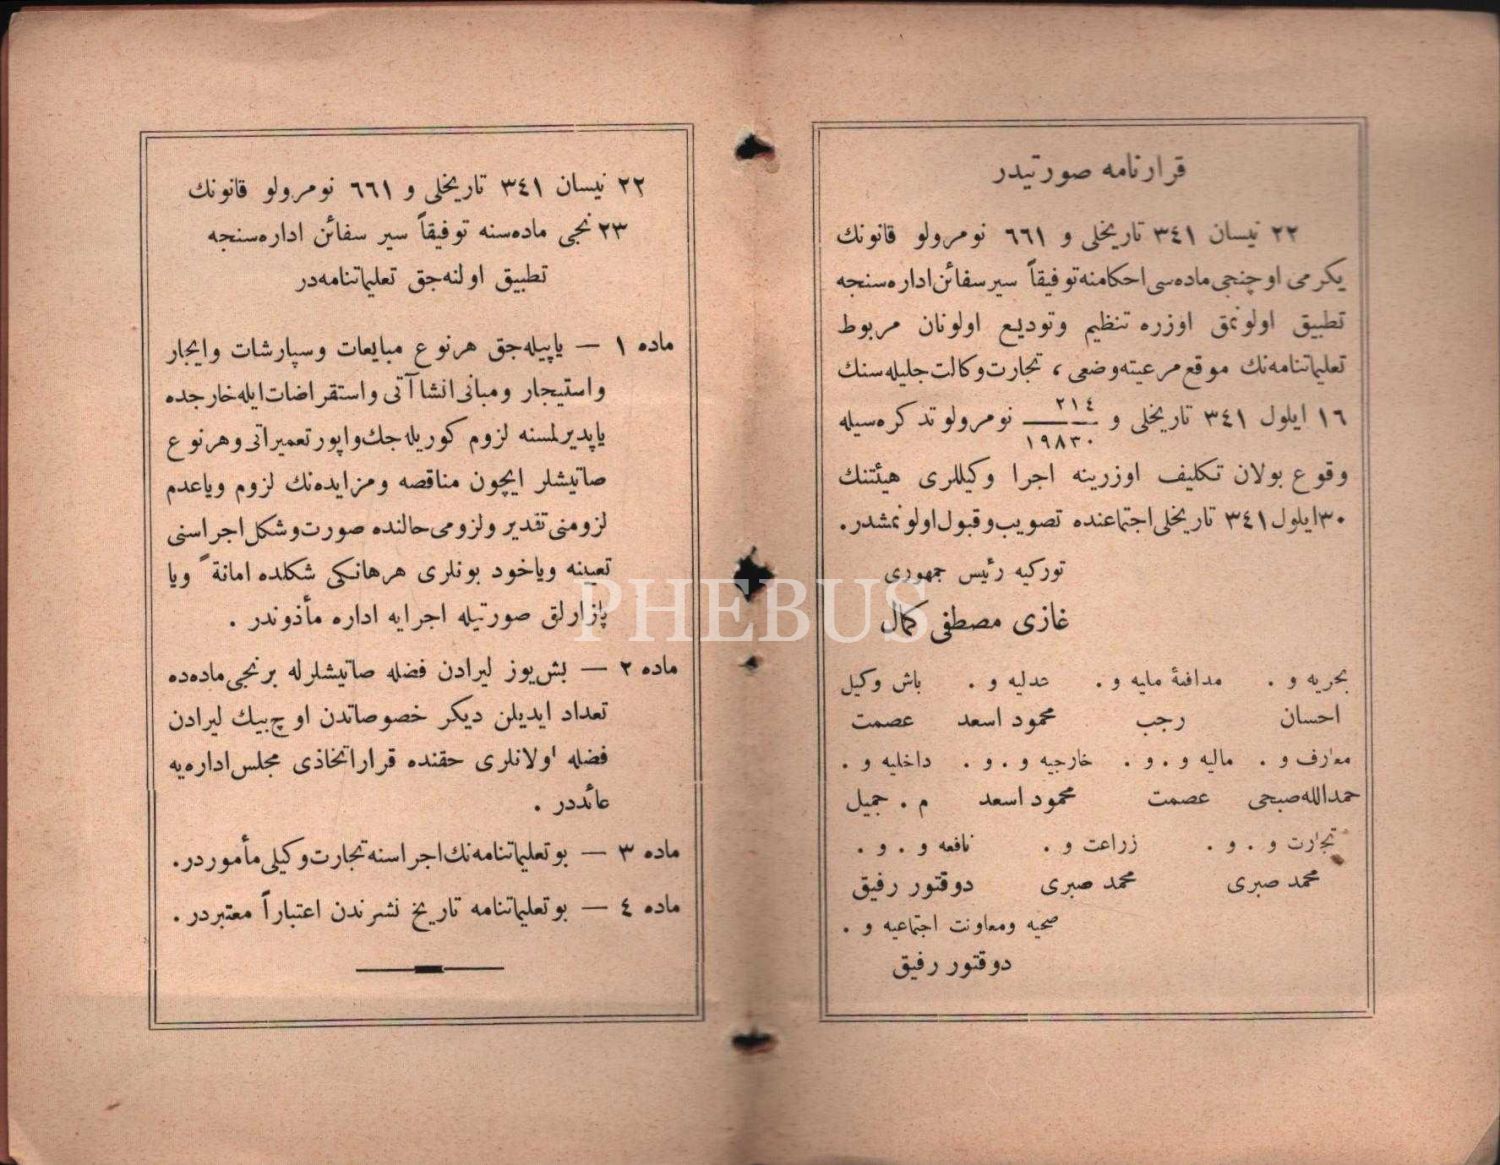 قرارنامه صورتيدر
٢٢ نيسان ٣٤١ تاريخلى و ٦٦١ نومرولو قانونك
يكرمى اوچنجى ماده‌سى احكامنه توفيقاً سير سفائن اداره‌سنجه
تطبيق اولونمق اوزره تنظيم وتوديع اولونان مربوط
تعليماتنامه‌نك موقع مرعيته وضعى ، تجارت وكالت جليله‌سنك
١٦ ايلول ٣٤١ تاريخلى و ٢١٤/١٩٨٣٠ نومرولو تذكره‌سيله
وقوع بولان تكليف اوزرينه اجرا وكيللرى هيئتنك
٣٠ ايلول ٣٤١ تاريخلى اجتماعنده تصويب وقبول اولونمشدر.
توركيه رئيس جمهورى
غازى مصطفى كمال
بحريه و . مدافعۀ مليه و . عدليه و . باش وكيل
احسان رجب محمود اسعد عصمت
معارف و . ماليه و . و . خارجيه و . و . داخليه و .
حمدالله صبحى عصمت محمود اسعد م . جميل
تجارت و . و . زراعت و . نافعه و . و .
محمد صبرى محمد صبرى دوقتور رفيق
صحيه ومعاونت اجتماعيه و .
دوقتور رفيق
٢٢ نيسان ٣٤١ تاريخلى و ٦٦١ نومرولو قانونك
٢٣ نجى ماده‌سنه توفيقاً سير سفائن اداره‌سنجه
تطبيق اولنه‌جق تعليماتنامه‌در
ماده ١ — ياپيله‌جق هر نوع مبايعات وسپارشات وايجار
واستيجار ومبانى انشاآتى واستقراضات ايله خارجده
ياپديرلمسنه لزوم كوريله‌جك واپور تعميراتى وهر نوع
صاتيشلر ايچون مناقصه ومزايده‌نك لزوم وياعدم
لزومنى تقدير ولزومى حالنده صورت وشكل اجراسنى
تعيينه وياخود بونلرى هر هانكى شكلده امانةً ويا
پازارلق صورتيله اجرايه اداره مأذوندر .
ماده ٢ — بش يوز ليرادن فضله صاتيشلرله برنجى ماده‌ده
تعداد ايديلن ديكر خصوصاتدن اوچ بيك ليرادن
فضله اولانلرى حقنده قرار اتخاذى مجلس اداره‌يه
عائددر .
ماده ٣ — بو تعليماتنامه‌نك اجراسنه تجارت وكيلى مأموردر.
ماده ٤ — بو تعليماتنامه تاريخ نشرندن اعتباراً معتبردر.
PHEBUS